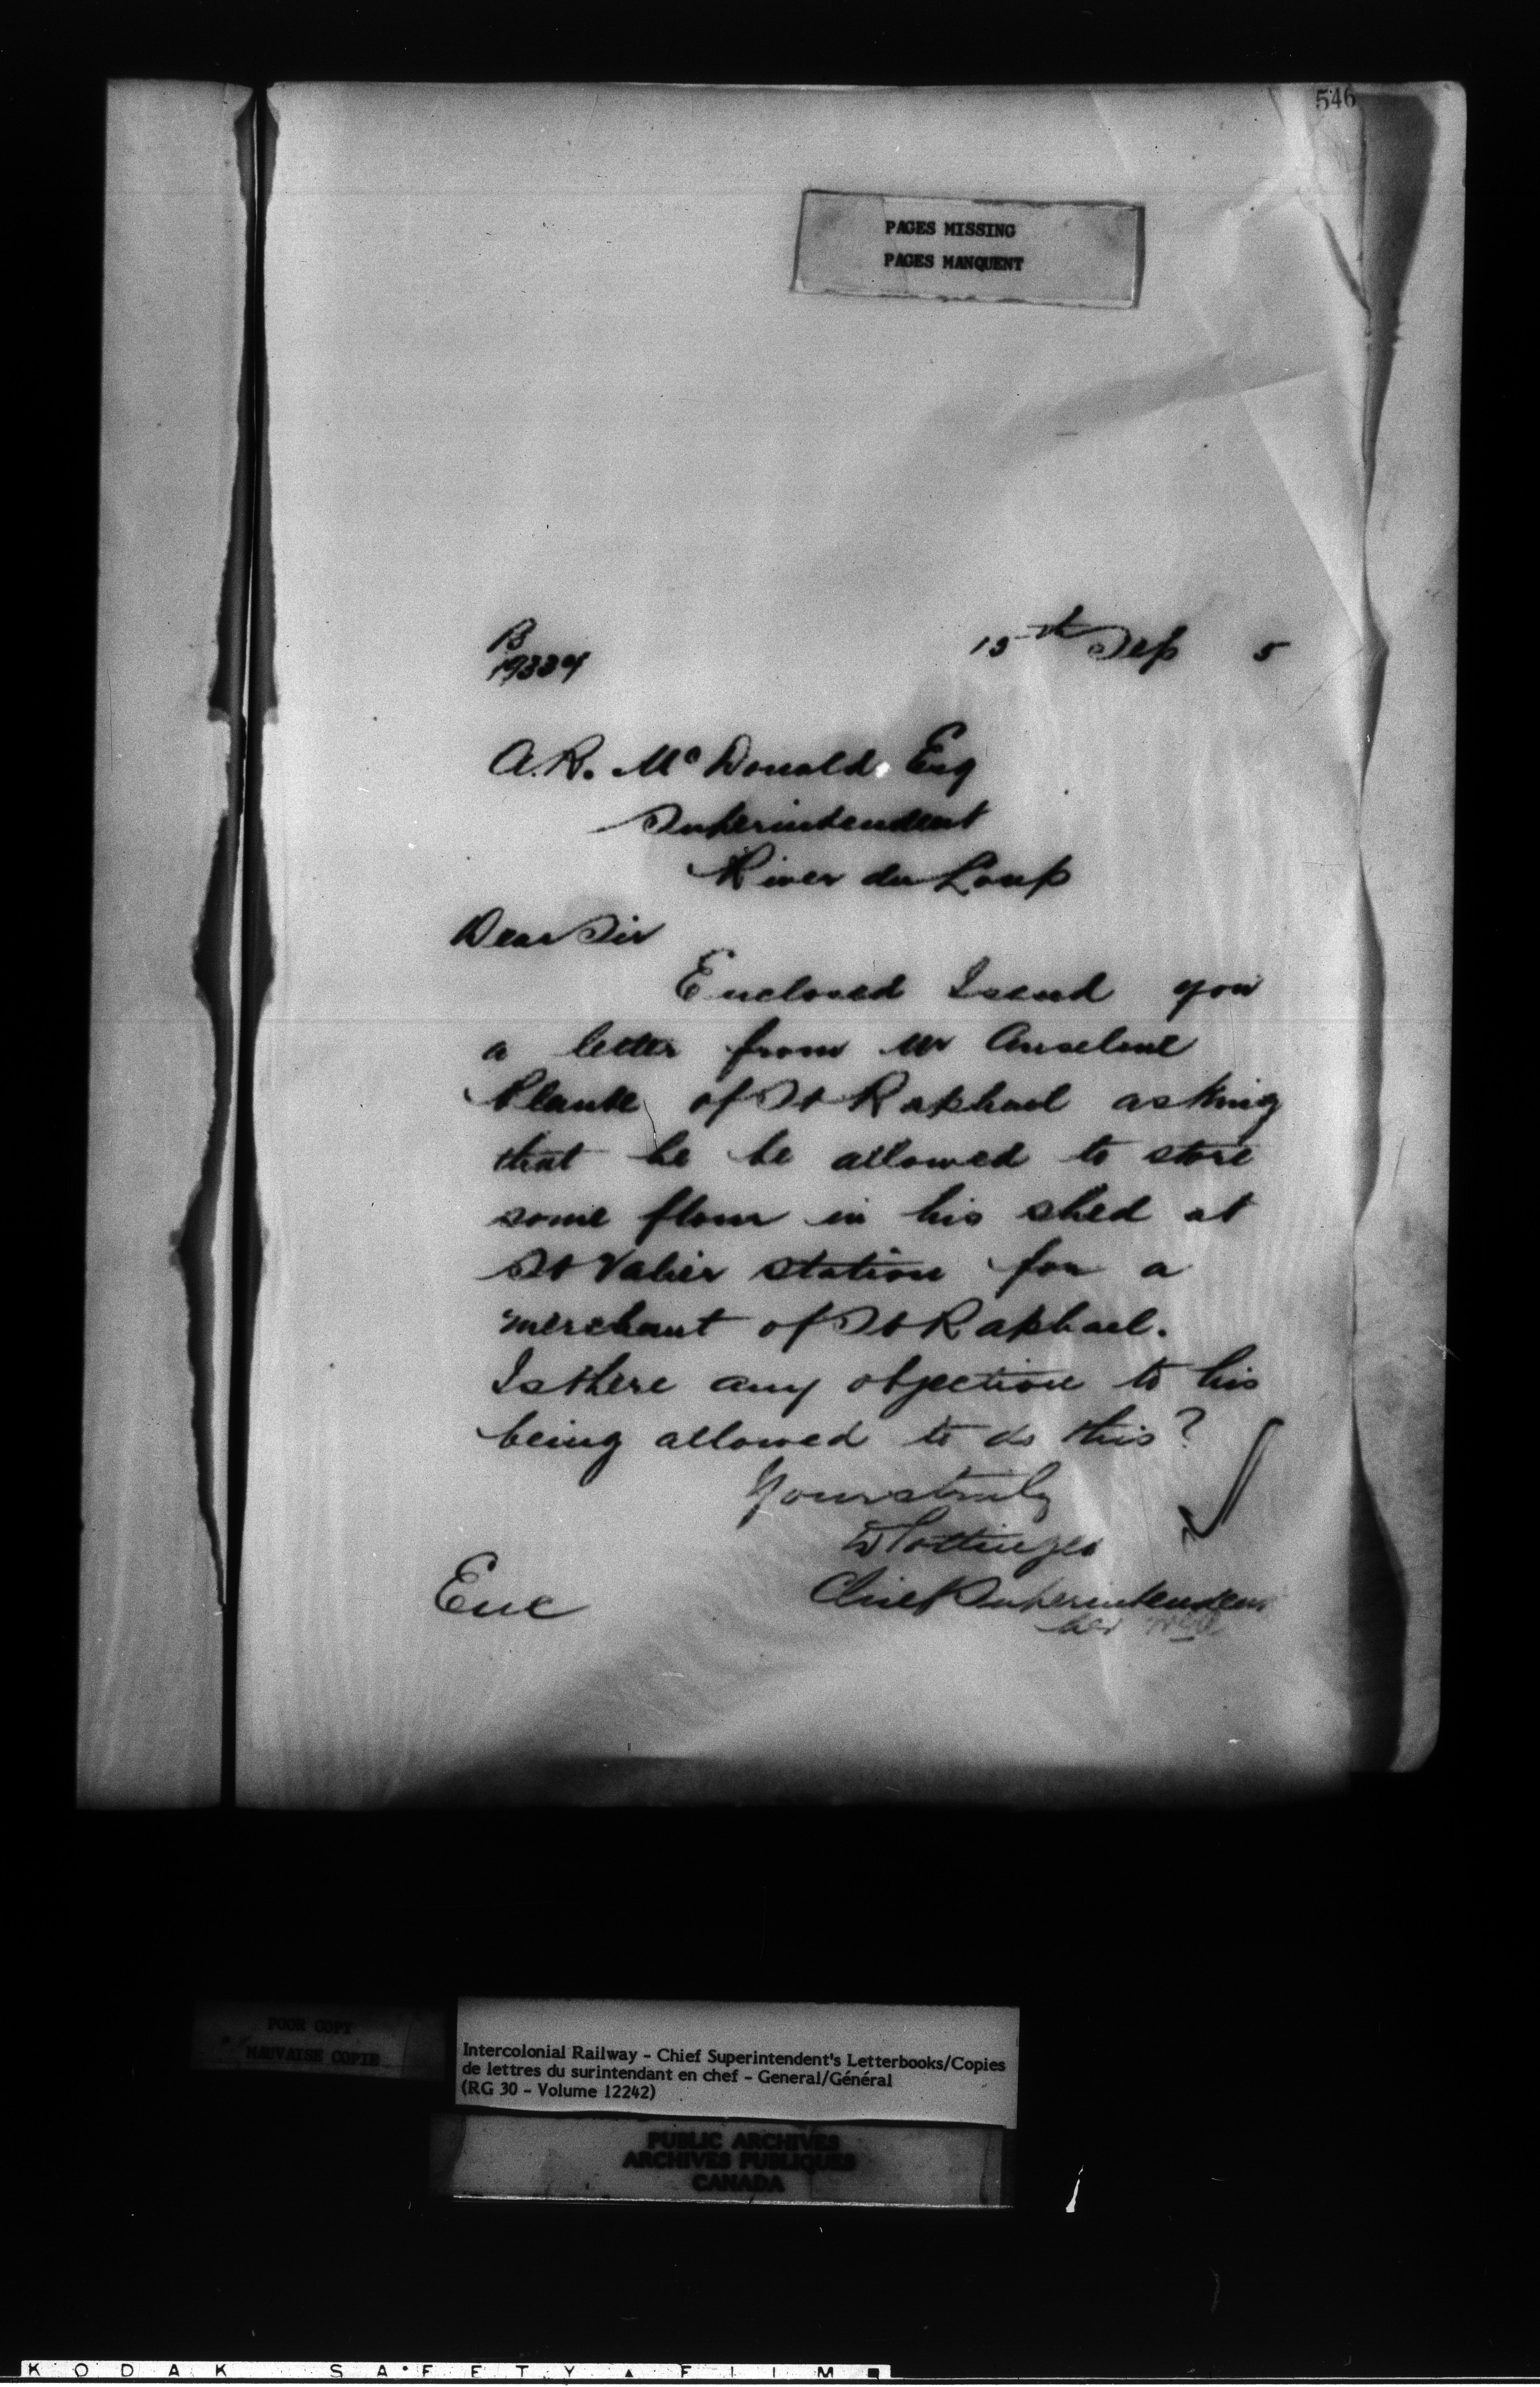 546
PAGES MISSING
PAGES MANQUENT
B
19334
15th Sep 5
A.R. McDonald Esq
Superintendent
River du Loup
Dear Sir
Enclosed I send you
a letter from Mr Anselme
Plante of St Raphael asking
that he be allowed to store
some flour in his shed at
St Valier station for a
merchant of St Raphael.
Is there any objection to his
being allowed to do this?
Yours truly
D Pottinger
Chief Superintendent
Enc
POOR COPY
MAUVAISE COPIE
Intercolonial Railway - Chief Superintendent's Letterbooks/Copies
de lettres du surintendant en chef - General/Général
(RG 30 - Volume 12242)
PUBLIC ARCHIVES
ARCHIVES PUBLIQUES
CANADA
KODAK SAFETY FILM